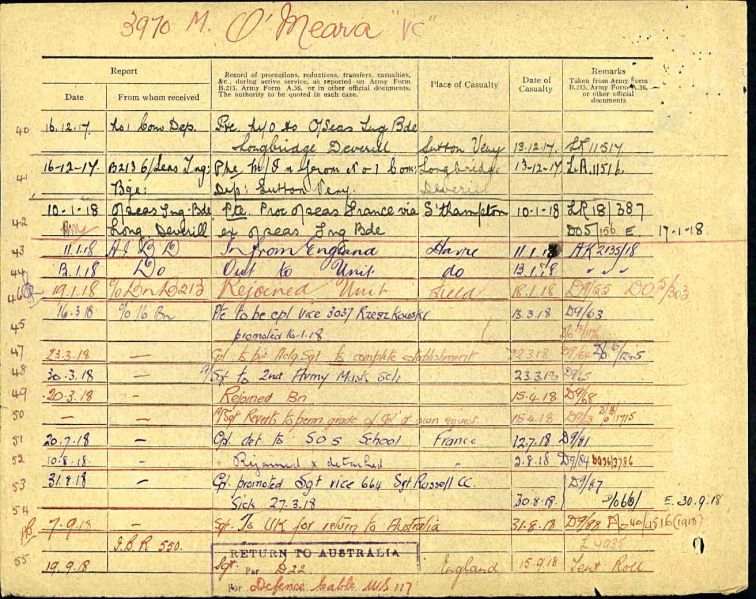 3970 M. O'Meara "VC"
Report
Record of promotions, reductions, transfers, casualties, &c., during active service, as reported on Army Form B.213, Army Form A.36, or in other official documents. The authority to be quoted in each case.
Place of Casualty
Date of Casualty
Remarks
Taken from Army Form B.213, Army Form A.36, or other official documents
Date
From whom received
40 16.12.17. No1 Com Dep. Pte h/o to O/Seas Tng Bde
Longbridge Deverill Sutton Veny 13.12.17. LR 11517
41 16-12-17 B213 O/Seas Tng: Pte M/I n from No 1 Com: Longbridge 13-12-17. LR.11516.
Bge: Dep: Sutton Veny. Deverill
42 10-1-18 O/seas Tng Bde Pte. Proc o/seas France via S'thampton 10-1-18 LR 18/387
Long Deverill ex o/seas Tng Bde DO5/156 E 17-1-18.
43 11.1.18 In from England Havre 11.1.18 AK 2135/18
44 13.1.18 Do Out to Unit do 13.1.18 " " "
46 19.1.18 Rejoined Unit Field 18.1.18 D9/55 DO5/303
16.3.18 O/C 16 Bn Pte to be cpl vice 3037 Rzeszkowski 13.3.18 D9/63
45 promoted 16-1-18
47 23.3.18 — Cpl to be Actg Sgt to complete establishment 22.3.18 D9/64
48 30.3.18 — A/Sgt to 2nd Army Musk Sch 23.3.18 D9/65
49 20.3.18 — Rejoined Bn 15.4.18 D9/68
50 — — A/Sgt Reverts to perm grade of Cpl at own request 15.4.18 D9/73
51 20.7.18 — Cpl det to SOS School France 12.7.18 D9/81
52 10.8.18 — " Rejoined x detached " 2.8.18 D9/84 DO36/3786
53 31.8.18 — Cpl promoted Sgt vice 664 Sgt Russell CC. D9/87
54 Sick 27.3.18 30.8.18. E. 30.9.18
7.9.18 — Sgt. To UK for return to Australia 31.8.18 D9/88
I.B.R 550.
RETURN TO AUSTRALIA
55 19.9.18 Sgt. Per D22 England 15.9.18 Tent Roll
Per Defence Cable WS 117